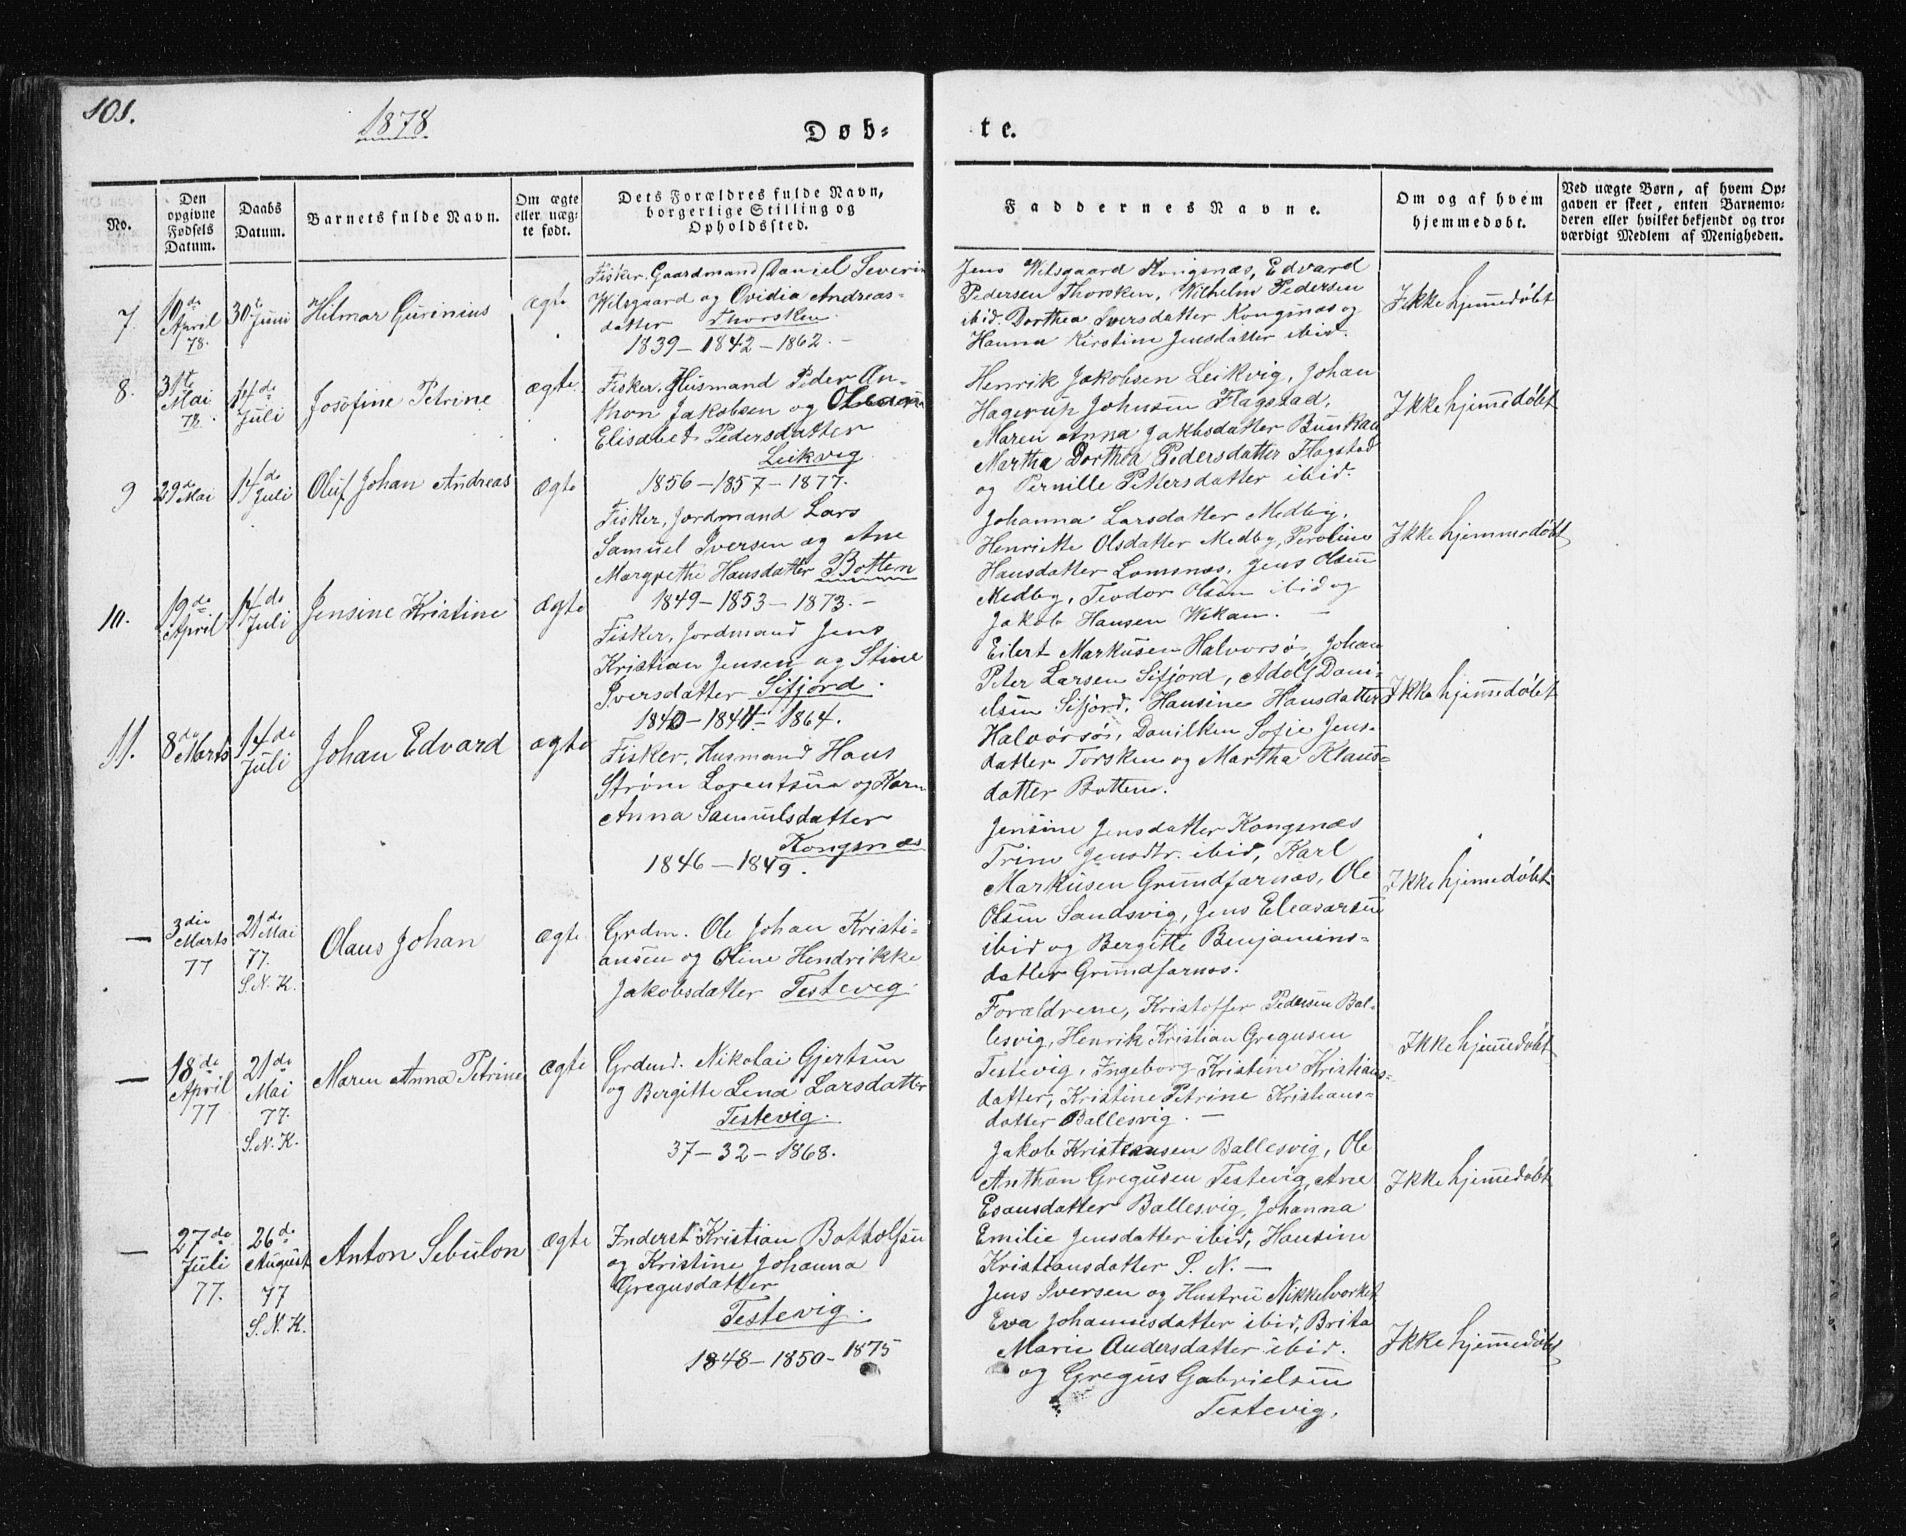 101.
1878.
Døb-
te.
No.
Den opgivne Fødsels Datum.
Daabs Datum.
Barnets fulde Navn.
Om ægte eller uægte født.
Dets Forældres fulde Navn, borgerlige Stilling og Opholdssted.
Faddernes Navne.
Om og af hvem hjemmedøbt.
Ved uægte Børn, af hvem Opgaven er skeet, enten Barnemoderen eller hvilket bekjendt og troværdigt Medlem af Menigheden.
7
10de April 78.
30te Juni
Hilmar Gurinius
ægte
Fisker, Gaardmand Daniel Severin
Wilsgaard og Ovidia Andreas-
datter Thorsken.
1839 - 1842 - 1862. -
Jens Wilsgaard Kongsnæs, Edvard
Pedersen Thorsken, Wilhelm Pedersen
ibid. Dorthea Iversdatter Kongsnæs og
Hanna Kirstine Jensdatter ibid.
Ikke hjemmedøbt
8.
31te Mai 78.
14de Juli
Josefine Petrine
ægte
Fisker, Husmand Peder An-
thon Jakobsen og
Elisabet Pedersdatter
Leikvig
1856 - 1857 - 1877.
Henrik Jakobsen Leikvig, Johan
Hagerup Johnsen Flagstad,
Maren Anna Jakobsdatter
Martha Dorthea Pedersdatter Flagstad
og Pernille Pettersdatter ibid.
Ikke hjemmedøbt
9
29de Mai
14de Juli
Oluf Johan Andreas
ægte
Fisker, Jordmand Lars
Samuel Iversen og Ane
Margrethe Hansdatter Botten
1849 - 1853 - 1873. -
Johanna Larsdatter Medby,
Henriette Olsdatter Medby, Peroline
Hansdatter Lomsnæs, Jens Olsen
Medby, Teodor Olsen ibid og
Jakob Hansen Wekan. -
Ikke hjemmedøbt
10.
19de April
14de Juli
Jensine Kristine
Ægte
Fisker, Jordmand Jens
Kristian Jensen og Stine
Iversdatter Sifjord.
1840 - 1841 - 1864.
Eilert Markusen Halvorsø, Johan
Peter Larsen Sifjord, Adolf Dani-
elsen Sifjord, Hansine Hansdatter
Halvorsøi, Danilken Sofie Jens-
datter Torsken og Martha Klaus-
datter Botten.
Ikke hjemmedøbt
11.
8de Marts
14de Juli
Johan Edvard
ægte
Fisker, Husmand Hans
Strøm Lorentsen og Karn
Anna Samuelsdatter
Kongsnæs
1846 - 1849.
Jensine Jensdatter Kongsnæs
Trine Jensdtr. ibid, Karl
Markusen Grundfarnæs, Ole
Olsen Sandsvig, Jens Eleasarsen
ibid og Bergitte Benjamins-
datter Grundfarnæs.
Ikke hjemmedøbt
—
3die Marts 77
21de Mai 77. S. N. K.
Olaus Johan
ægte
Grdm. Ole Johan Kristi-
ansen og Oline Hendrikke
Jakobsdatter Testevig.
Forældrene, Kristoffer Pedersen Bal-
lesvig, Henrik Kristian Gregusen
Testevig, Ingeborg Kristine Kristians-
datter, Kristine Petrine Kristians-
datter Ballesvig. -
Ikke hjemmedøbt
—
18de April 77
21de Mai 77. S. N. K.
Maren Anna Petrine
ægte
Grdmd. Nikolai Gjertsen
og Bergitte Lena Larsdatter
Testevig.
37 - 32 - 1868.
Jakob Kristiansen Ballesvig, Ole
Anthon Gregusen Testevig, Ane
Esausdatter Ballesvig, Johanna
Emilie Jensdatter ibid, Hansine
Kristiansdatter S. N. -
Ikke hjemmedøbt
—
27de Juli 77.
26de August 77 S. N. K.
Anton Sebulon
ægte
Inderst Kristian Botholfsen
og Kristine Johanna
Gregusdatter
Testevig.
1848 - 1850 - 1875
Jens Iversen og Hustru Nikkelverket
Eva Johannesdatter ibid, Brita
Marie Andersdatter ibid.
og Gregus Gabrielsen
Testevig.
Ikke hjemmedøbt